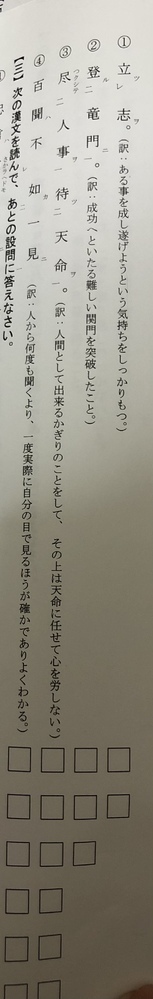 ① 立ツルレ志ヲ。（訳：ある事を成し遂げようという気持ちをしっかりもつ。）
② 登ル二竜門ニ一。（訳：成功へといたる難しい関門を突破したこと。）
③ 尽つクシテ二人事ヲ一待ツ二天命ヲ一。（訳：人間として出来るかぎりのことをして、その上は天命に任せて心を労しない。）
④ 百聞ハ不レ如カ二一見ニ一（訳：人から何度も聞くより、一度実際に自分の目で見るほうが確かでありよくわかる。）
【三】次の漢文を読んで、あとの設問に答えなさい。